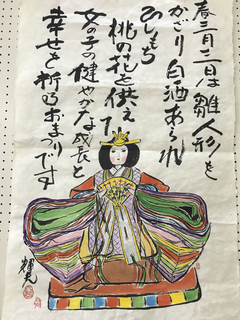 春三月三日は雛人形を
かざり白酒あられ
ひしもち
桃の花を供えて
女の子の健やかな成長と
幸せを祈るおまつりです